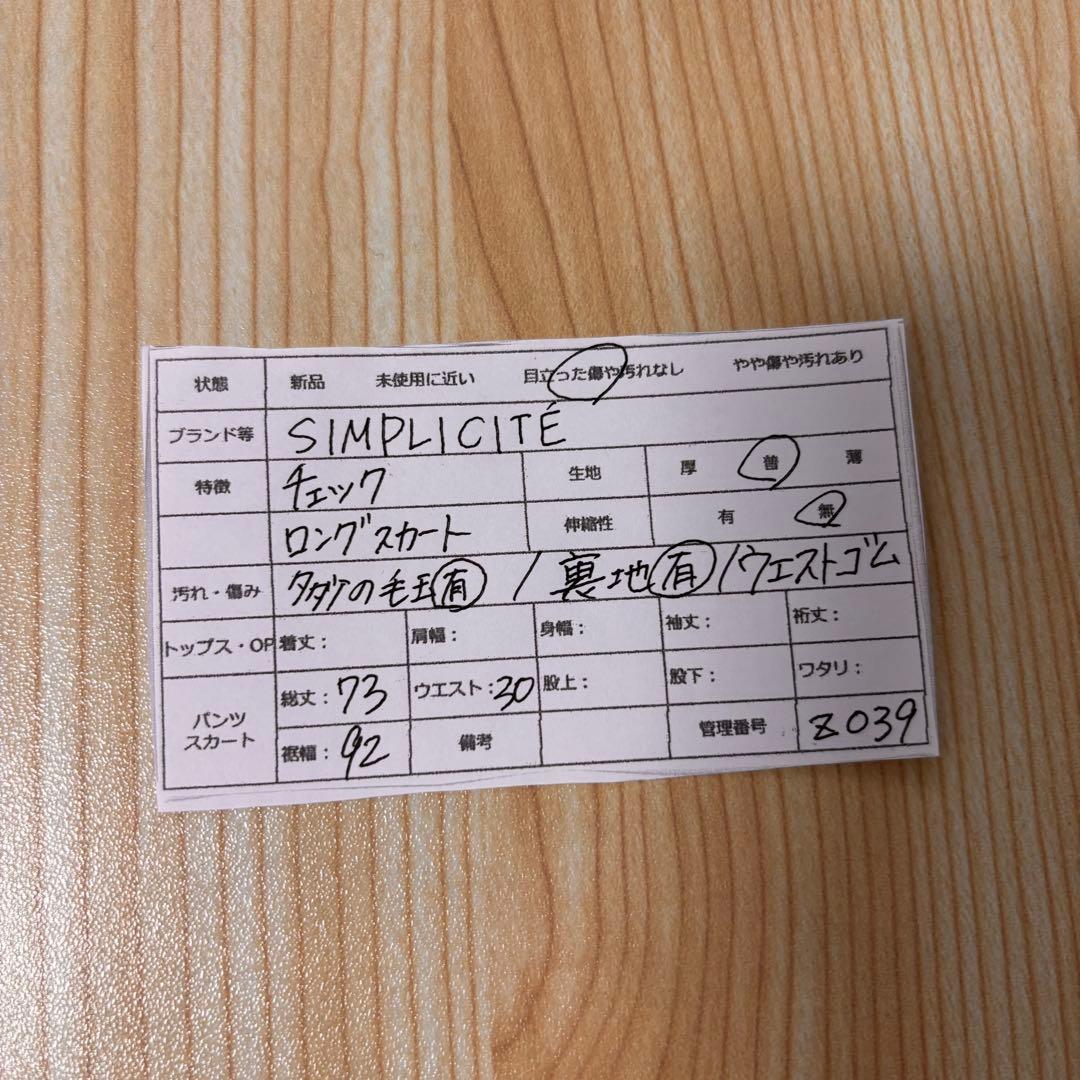 状態 新品 未使用に近い 目立った傷や汚れなし やや傷や汚れあり
ブランド等 SIMPLICITÉ
特徴 チェック 生地 厚 普 薄
ロングスカート 伸縮性 有 無
汚れ・傷み タダケの毛玉有 / 裏地有 / ウエストゴム
トップス・OP 着丈: 肩幅: 身幅: 袖丈: 裄丈:
パンツ スカート 総丈:73 ウエスト:30 股上: 股下: ワタリ:
裾幅:92 備考 管理番号 Z039